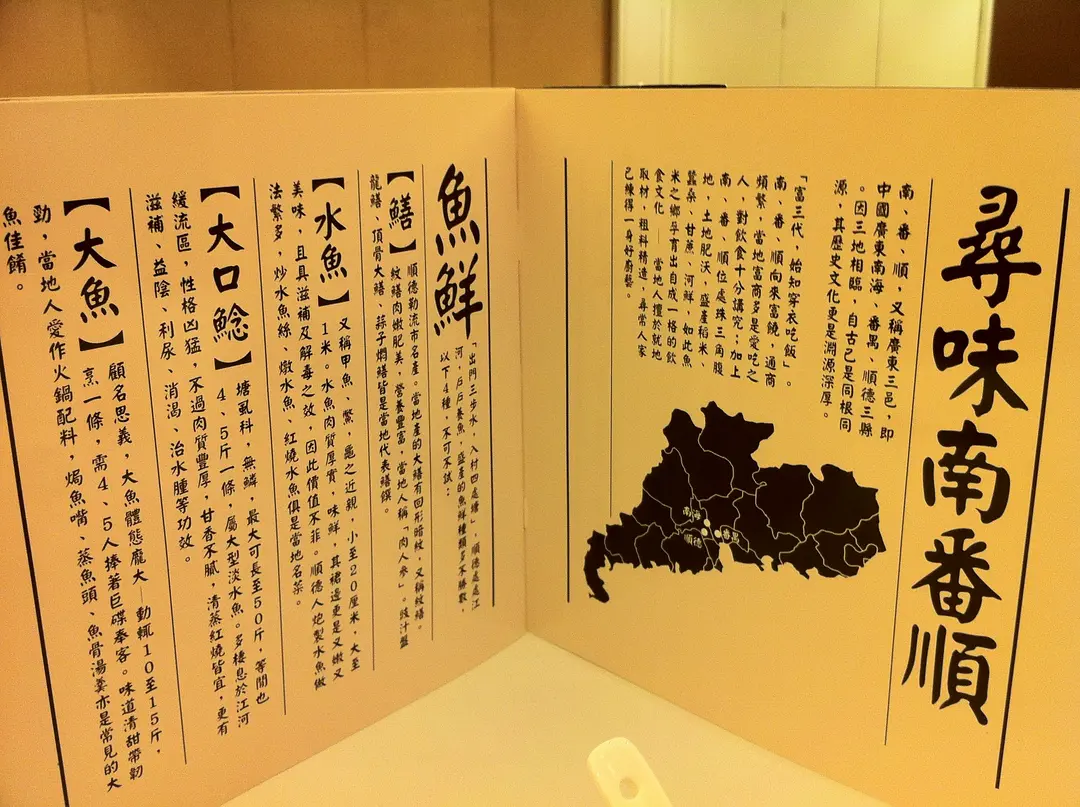 尋味南番順
南、番、順，又稱廣東三邑，即
中國廣東南海、番禺、順德三縣
。因三地相臨，自古已是同根同
源，其歷史文化更是淵源深厚。
「富三代，始知穿衣吃飯」。
南、番、順向來富饒，通商
頻繁，當地富商多是愛吃之
人，對飲食十分講究；加上
南、番、順位處珠三角腹
地，土地肥沃，盛產稻米、
蠶桑、甘蔗、河鮮，如此魚
米之鄉孕育出自成一格的飲
食文化——當地人擅於就地
取材，粗料精造，尋常人家
已練得一身好廚藝。
南海
番禺
順德
魚鮮
「出門三步水，入村四處塘」，順德處處江
河，戶戶養魚，盛產的魚鮮種類多不勝數，
以下4種，不可不試：
【鱔】順德勒流市名產。當地產的大鱔有回形暗紋，又稱紋鱔。
紋鱔肉嫩肥美，營養豐富，當地人稱「肉人參」。豉汁盤
龍鱔、頂骨大鱔、蒜子焖鱔皆是當地代表鱔饌。
【水魚】又稱甲魚，鱉，龜之近親，小至20厘米，大至
1米。水魚肉質厚實，味鮮，其裙邊更是又嫩又
美味，且具滋補及解毒之效，因此價值不菲。順德人炮製水魚做
法繁多，炒水魚絲、燉水魚、紅燒水魚俱是當地名菜。
【大口鯰】塘虱科，無鱗，最大可長至50斤，等閒也
4、5斤一條，屬大型淡水魚。多棲息於江河
緩流區，性格凶猛，不過肉質豐厚，甘香不膩，清蒸紅燒皆宜，更有
滋補、益陰、利尿、消渴、治水腫等功效。
【大魚】顧名思義，大魚體態龐大—動輒10至15斤，
烹一條，需4、5人捧著巨碟奉客。味道清甜帶韌
勁，當地人愛作火鍋配料，焗魚嘴、蒸魚頭、魚骨湯羹亦是常見的大
魚佳餚。